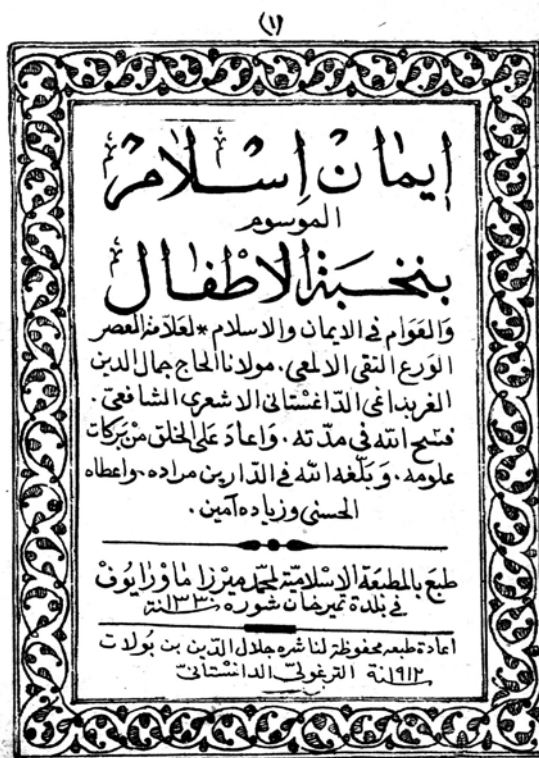 (١)
إيمان إسلام
الموسوم
بنخبة الاطفال
والعوام في الايمان والاسلام * لعلامة العصر
الورع التقي الالمعي. مولانا الحاج جمال الدين
الغربداغي الداغستاني الاشعري الشافعي.
فسح الله في مدته. واعاد على الخلق من بركات
علومه. وبلغه الله في الدارين مراده. واعطاه
الحسنى وزياده آمين.
طبع بالمطبعة الاسلامية لمحمد ميرزا ماورايوف
في بلدة تمير خان شوره سنة ١٣٣٠
اعادة طبعه محفوظة لناشره جلال الدين بن بولات
الترغولي الداغستاني سنة ١٩١٢